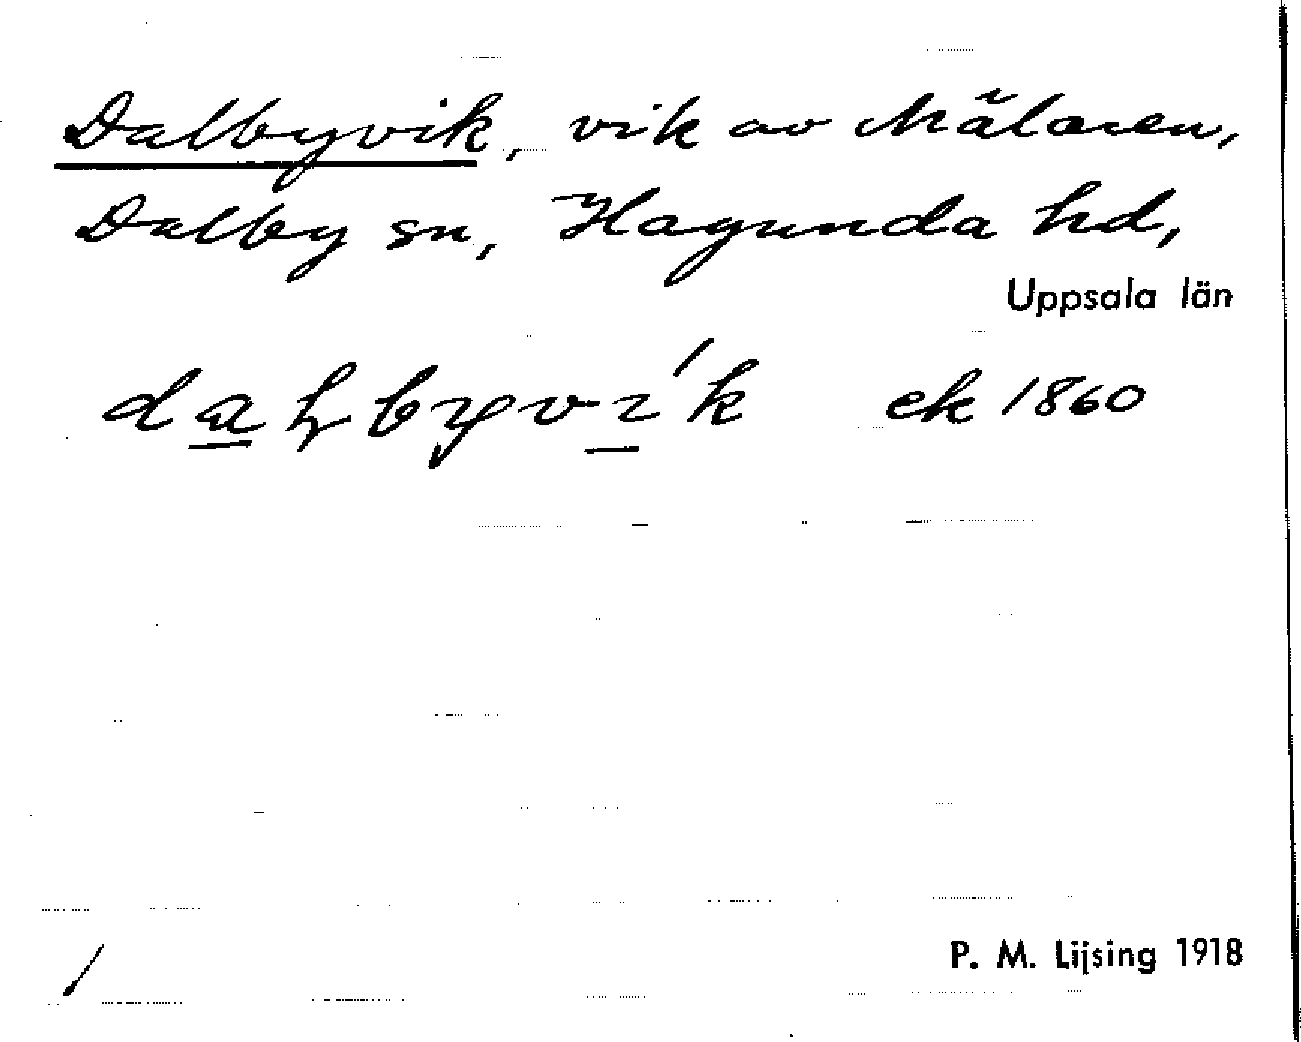 Dalbyvik, vik av Mälaren,
Dalby sn, Hagunda hd,
Uppsala län
ek 1860
P. M. Lijsing 1918